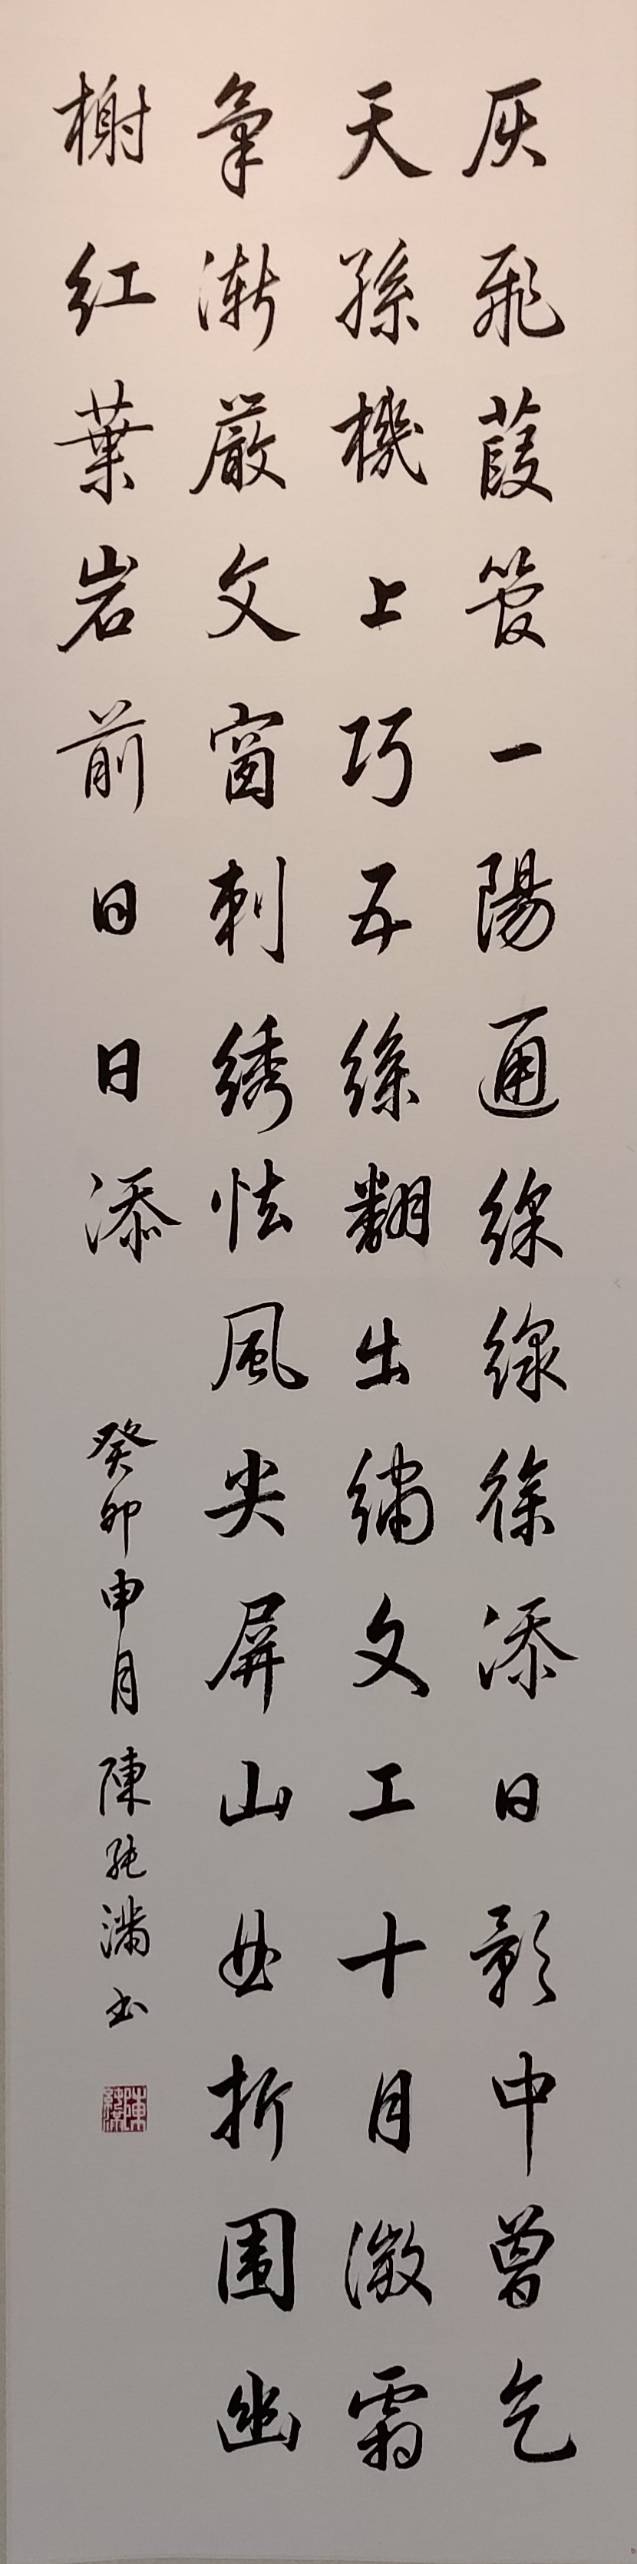 灰飛葭管一陽通綵線徐添日影中曾乞
天孫機上巧五絲翻出繡文工十月微霜
氣漸嚴文窗刺綉怯風尖屏山曲折圍幽
榭紅葉岩前日日添
癸卯申月陳純滿書